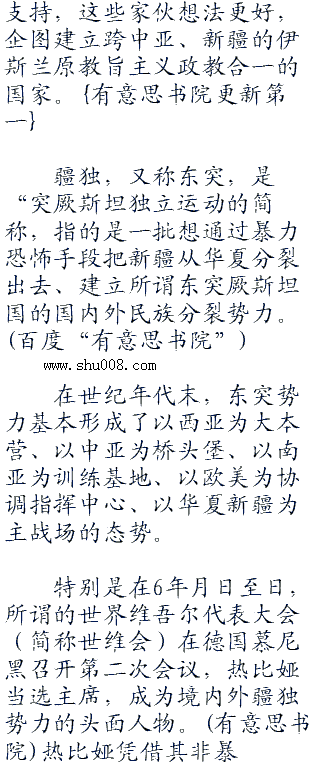 支持，这些家伙想法更好，
企图建立跨中亚、新疆的伊
斯兰原教旨主义政教合一的
国家。{有意思书院更新第
一}
疆独，又称东突，是
“突厥斯坦独立运动的简
称，指的是一批想通过暴力
恐怖手段把新疆从华夏分裂
出去、建立所谓东突厥斯坦
国的国内外民族分裂势力。
(百度“有意思书院”)
www.shu008.com
在世纪年代末，东突势
力基本形成了以西亚为大本
营、以中亚为桥头堡、以南
亚为训练基地、以欧美为协
调指挥中心、以华夏新疆为
主战场的态势。
特别是在6年月日至日，
所谓的世界维吾尔代表大会
（简称世维会）在德国慕尼
黑召开第二次会议，热比娅
当选主席，成为境内外疆独
势力的头面人物。(有意思书
院)热比娅凭借其非暴